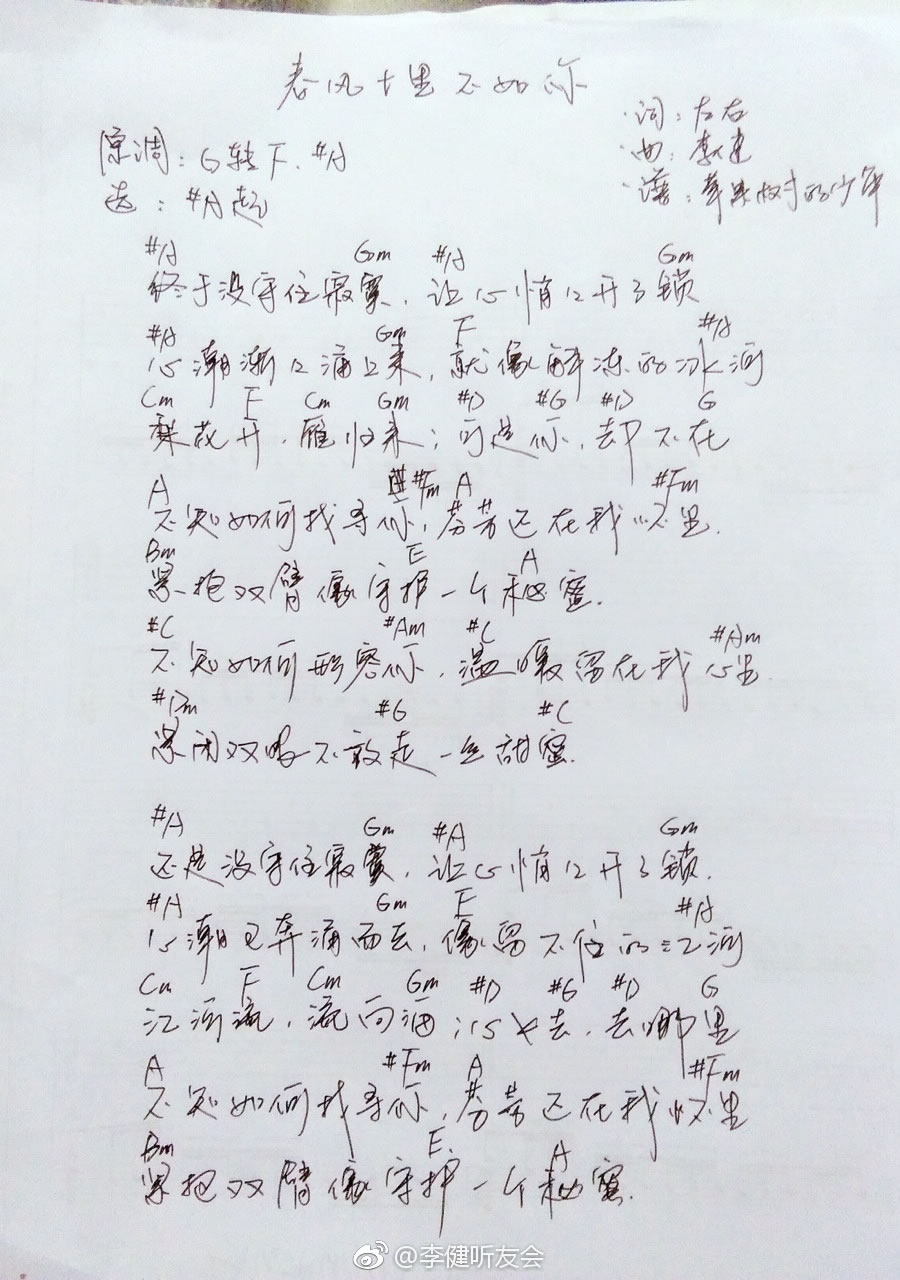 春风十里不如你
词：左右
原调：G转F.#A
曲：李健
选：#A起
谱：苹果树的少年
#A Gm #A Gm
终于没守住寂寞，让心悄々开了锁
#A Gm F #A
心潮渐々涌上来，就像解冻的冰河
Cm F Cm Gm #D #G #D G
梨花开，雁归来；可是你，却不在
A #Fm A #Fm
不知如何找寻你，芬芳还在我怀里.
Bm E A
紧抱双臂像守护一个秘蜜.
#C #Am #C #Am
不知如何形容你，温暖留在我心里
#Dm #G #C
紧闭双眼不放走一丝甜蜜.
#A Gm #A Gm
还是没守住寂寞，让心悄々开了锁.
#A Gm F #A
心潮已奔涌而去，像留不住的江河
Cm F Cm Gm #D #G #D G
江河流，流向海；心失去，去哪里
A #Fm A #Fm
不知如何找寻你，芬芳还在我怀里
Bm E. A
紧抱双臂像守护一个秘蜜.
@李健听友会